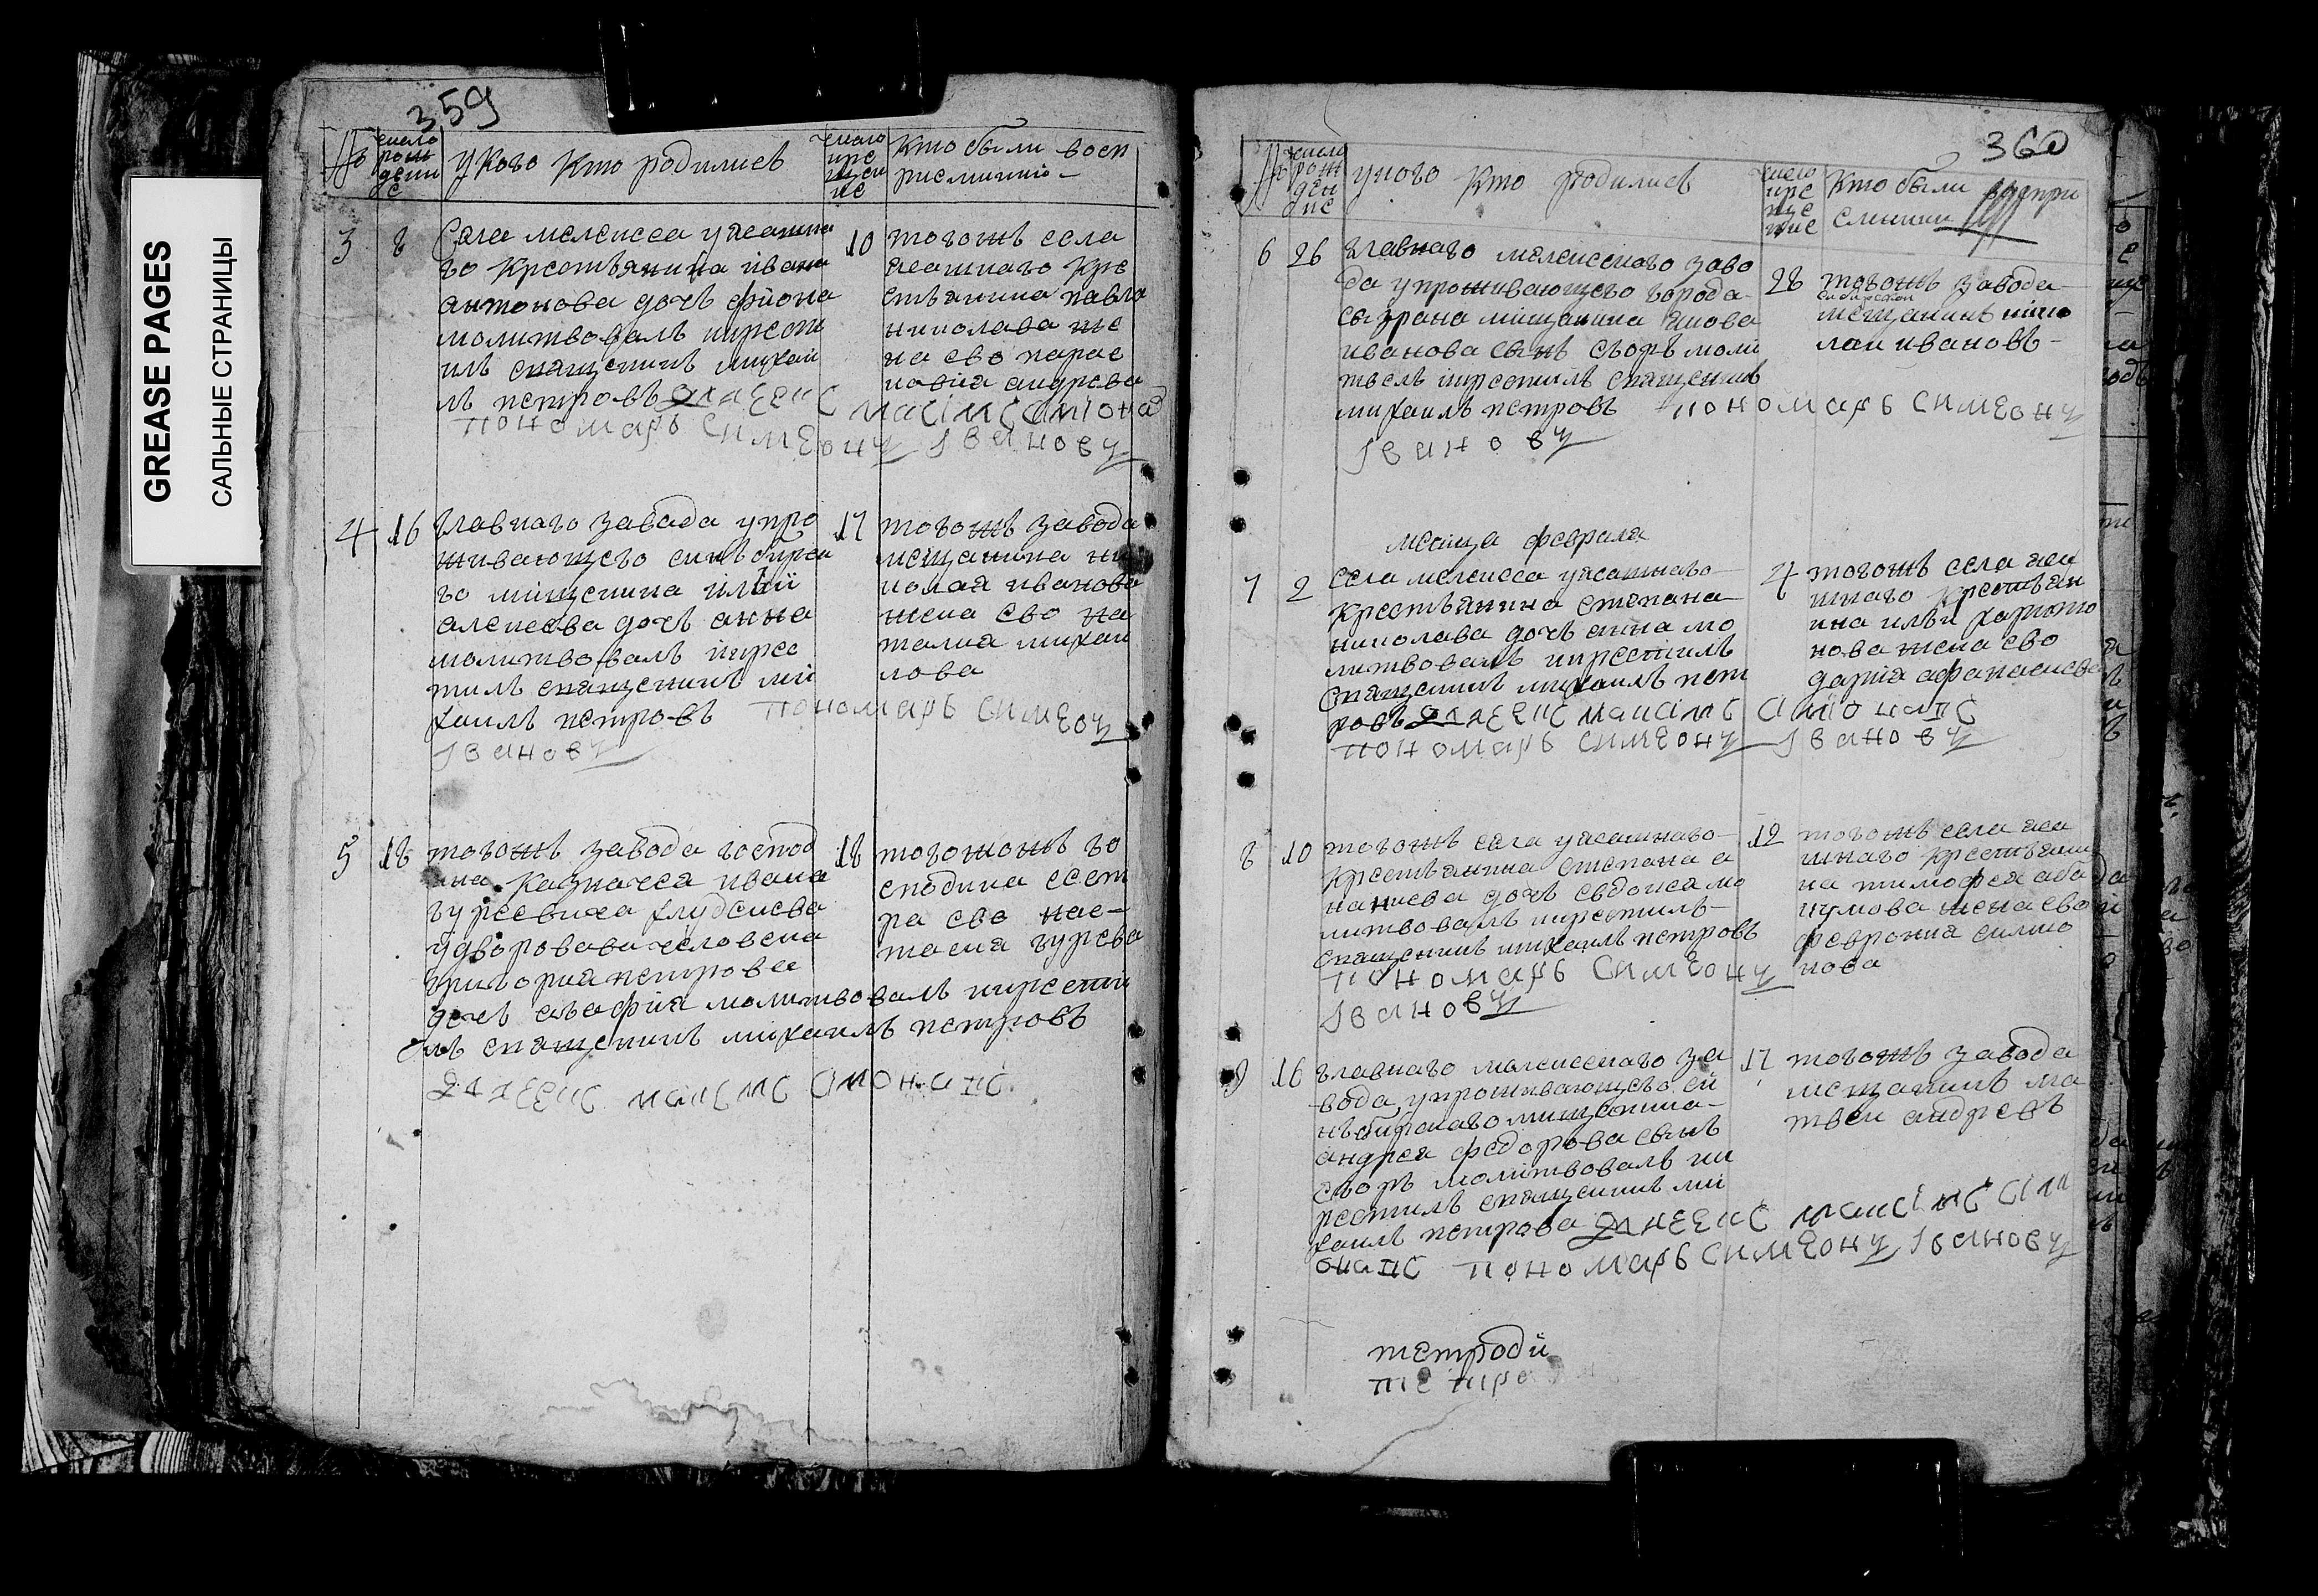 GREASE PAGES
САЛЬНЫЕ СТРАНИЦЫ
359
№
число рожъ дени е
у Кого Кто родилисъ
число кре щени ие
Кто были восп
риемники
3 8
Села мелекеса у ясашна
го Крестьянина ивана
антонова дочь фиона
молитвовалъ икрест
илъ священикъ михаи
лъ петровъ диячекъ максимъ симонов
пономарь симеонъ Iвановъ
10
тогожъ села
ясашнаго кре
стьянина павла
николава же
на ево парас
ковия андрева
4 16
главнаго завада у про
живающего синъбирска
го мищенина илиi
алексева дочь анна
молитвовалъ икрес
тилъ священикъ ми
хаилъ петровъ пономарь симеонъ
Iвановъ
17
тогожъ завода
мещанина ни
колая иванова
жена ево на
талия михаи
лова
5 18
тогожъ завода господ
ина Казначея ивана
гурсевича
у дворовава человека
григория петрова
дочь софия молитвовалъ икрести
лъ священикъ михаилъ петровъ
диячекъ максимъ симонапъ
18
тогожожъ го
сподина сест
ра ево нас-
тасия гурева
360
№
число рож ден ние
у кого Кто родилисъ
число кре ще ние
Кто были воспри
емники
6 26
главнаго мелекескаго заво
да у проживающего города
сызрана мищанина якова
иванова сынъ егоръ моли
твслъ икрестилъ священикъ
михаилъ петровъ пономарь симеонъ
Iвановъ
28
тогожъ завода
синбирскои
мещанинъ нико
лаи ивановъ
месяца февраля
7 2
Села мелекеса у ясашнаго
Крестьянина степана
николава дочь анна мо
литвовалъ икрестилъ
священикъ михаилъ пет
ровъ диячекъ максимъ симонапъ
пономарь симеонъ Iвановъ
4
тогожъ села яса
шнаго Крестьян
ина ильи харито
нова жена ево
дария афанасиева
8 10
тогожъ села у ясашнаго
Крестьянина степана а
наниева дочь евдокея мо
литвовалъ икрестилъ
священикъ михаилъ петровъ
пономарь симеонъ
Iвановъ
12
тогожъ села яса
шнаго Крестьяни
на тимофея аба
кумова жена ево
феврония симио
нова
9 16
главнаго мелекескаго за
вода у проживающего си
нъбирскаго мищанина
андрея федорова сынъ
егоръ молитвовалъ ик
рестилъ священикъ ми
хаилъ петрова диячекъ максимъ сим
онапъ пономарь симеонъ Iвановъ
17
тогожъ завода
мещанинъ ма
твеи андревъ
тетроди
тетро